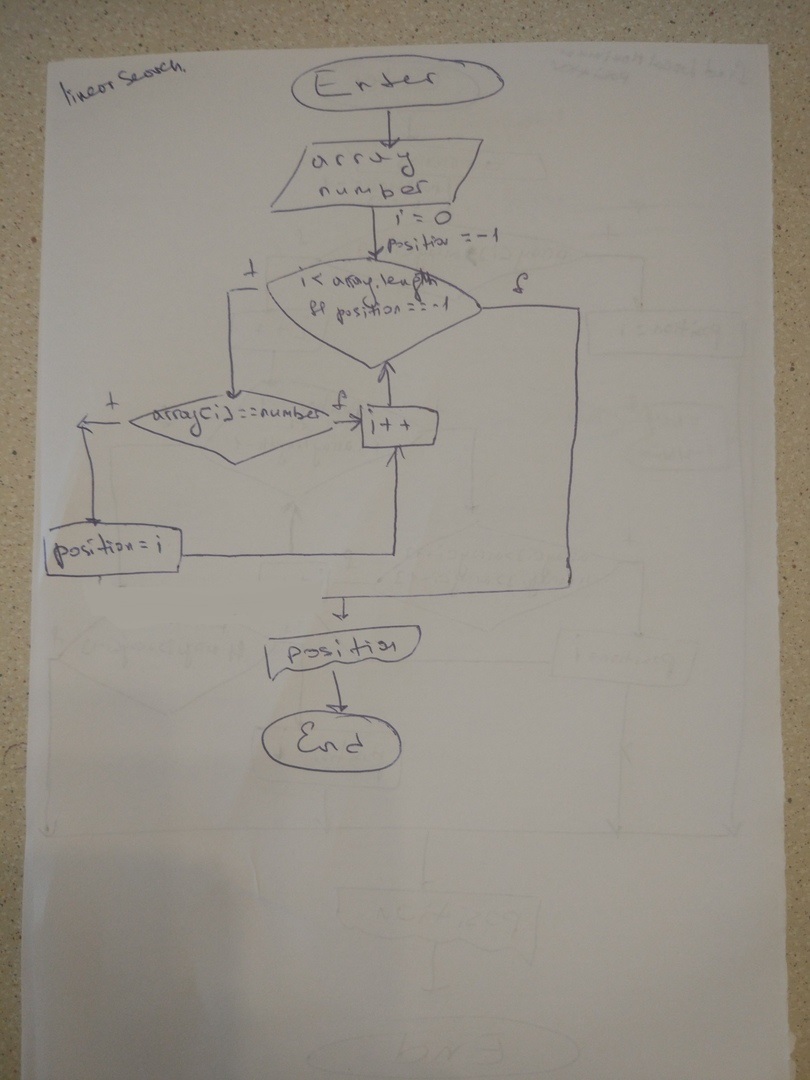 linear Search.
Enter
array
number
i = 0
position = -1
t
i < array.length
&& position == -1
f
t
array[i] == number
f
i++
position = i
position
End